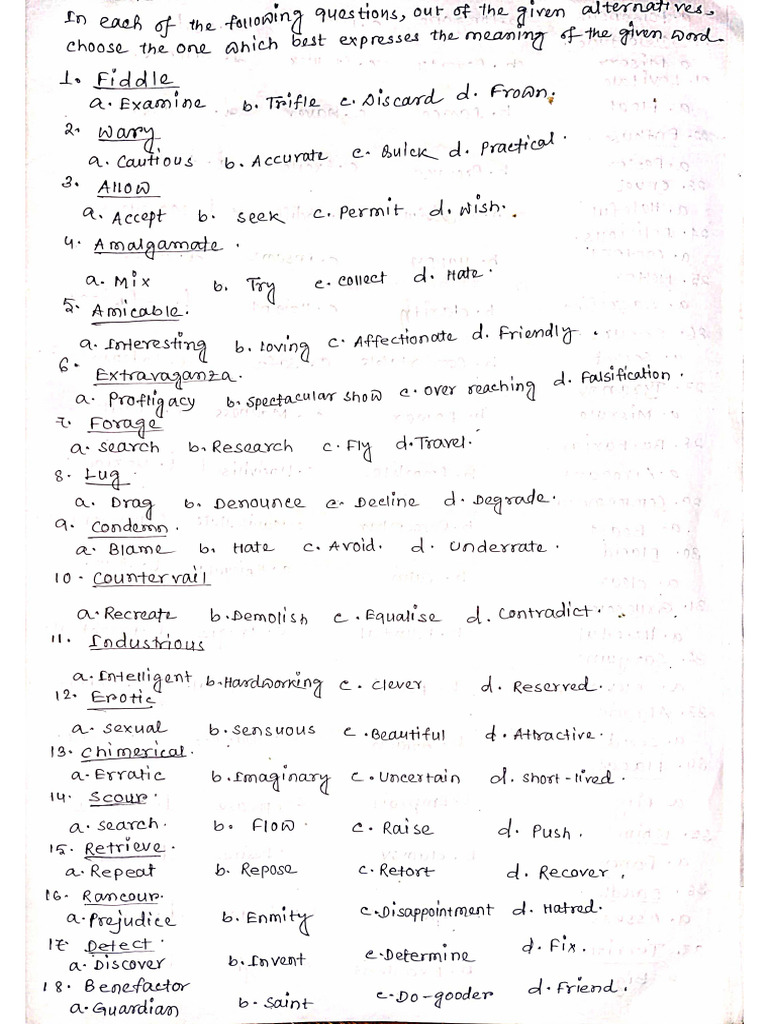 In each of the following questions, out of the given alternatives,
choose the one which best expresses the meaning of the given word.
1. Fiddle
a. Examine b. Trifle c. Discard d. Frown.
2. Wary
a. Cautious b. Accurate c. Bulck d. Practical.
3. Allow
a. Accept b. seek c. Permit d. Wish.
4. Amalgamate.
a. Mix b. Try c. collect d. Hate.
5. Amicable.
a. Interesting b. Loving c. Affectionate d. Friendly.
6. Extravaganza.
a. Profligacy b. Spectacular show c. over reaching d. Falsification.
7. Forage
a. search b. Research c. Fly d. Travel.
8. Lug.
a. Drag b. Denounce c. Decline d. Degrade.
9. Condemn.
a. Blame b. Hate c. Avoid. d. Underrate.
10. Countervail
a. Recreate b. Demolish c. Equalise d. Contradict.
11. Industrious
a. Intelligent b. Hardworking c. clever d. Reserved.
12. Erotic
a. sexual b. sensuous c. Beautiful d. Attractive.
13. Chimerical.
a. Erratic b. Imaginary c. Uncertain d. short-lived.
14. Scour.
a. search. b. Flow. c. Raise d. Push.
15. Retrieve.
a. Repeat b. Repose c. Retort d. Recover.
16. Rancour.
a. Prejudice b. Enmity c. Disappointment d. Hatred.
17. Detect.
a. Discover b. Invent c. Determine d. Fix.
18. Benefactor
a. Guardian b. Saint c. Do-gooder d. Friend.